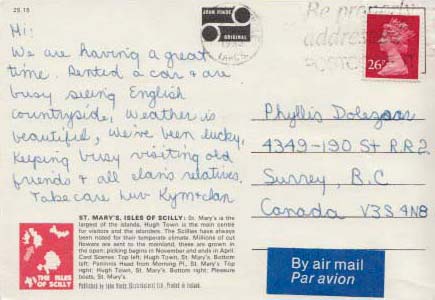 2S 15
JOHN HINDE
ORIGINAL
Be properly
addressed
26P
Hi:
We are having a great
time. Rented a car & are
busy seeing English
countryside, weather is
beautiful, we've been lucky.
Keeping busy visiting old
friends & all clan's relatives.
Take care luv Kym & clan
Phyllis Dolezar
4349-190 St RR2
Surrey, B.C
Canada V3S 4N8
ST. MARY'S, ISLES OF SCILLY: St. Mary's is the
largest of the islands, Hugh Town is the main centre
for visitors and the islanders. The Scillies have always
been noted for their temperate climate. Millions of cut
flowers are sent to the mainland, these are grown in
the open; picking begins in November and ends in April.
Card Scenes: Top left; Hugh Town, St. Mary's. Bottom
left; Peninnis Head from Morning Pt., St. Mary's. Top
right; Hugh Town, St. Mary's. Bottom right; Pleasure
boats, St. Mary's.
Published by John Hinde (Distributors) Ltd. Printed in Ireland.
THE ISLES
OF SCILLY
By air mail
Par avion